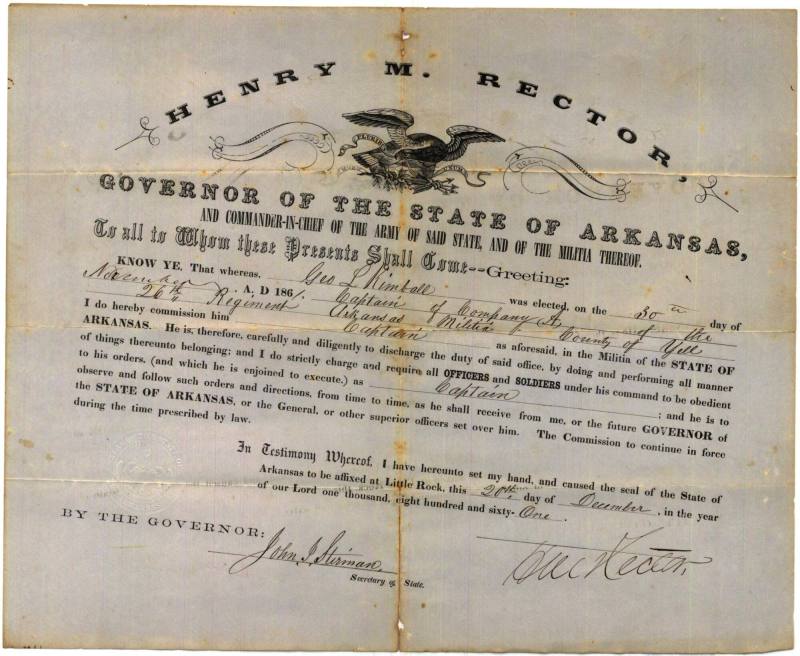 HENRY M. RECTOR,
GOVERNOR OF THE STATE OF ARKANSAS,
AND COMMANDER-IN-CHIEF OF THE ARMY OF SAID STATE, AND OF THE MILITIA THEREOF.
To all to Whom these Presents Shall Come--Greeting:
KNOW YE, That whereas, Geo L Kimball was elected, on the 30th day of
November A, D 1861 Captain of Company A, of the
26th Regiment Arkansas Militia County of Yell
I do hereby commission him Captain as aforesaid, in the Militia of the STATE OF
ARKANSAS. He is, therefore, carefully and diligently to discharge the duty of said office, by doing and performing all manner
of things thereunto belonging; and I do strictly charge and require all OFFICERS and SOLDIERS under his command to be obedient
to his orders, (and which he is enjoined to execute,) as Captain ; and he is to
observe and follow such orders and directions, from time to time, as he shall receive from me, or the future GOVERNOR of
the STATE OF ARKANSAS, or the General, or other superior officers set over him. The Commission to continue in force
during the time prescribed by law.
In Testimony Whereof, I have hereunto set my hand, and caused the seal of the State of
Arkansas to be affixed at Little Rock, this 20th day of December, in the year
of our Lord one thousand, eight hundred and sixty-One.
BY THE GOVERNOR:
John I. Stirman,
Secretary of State.